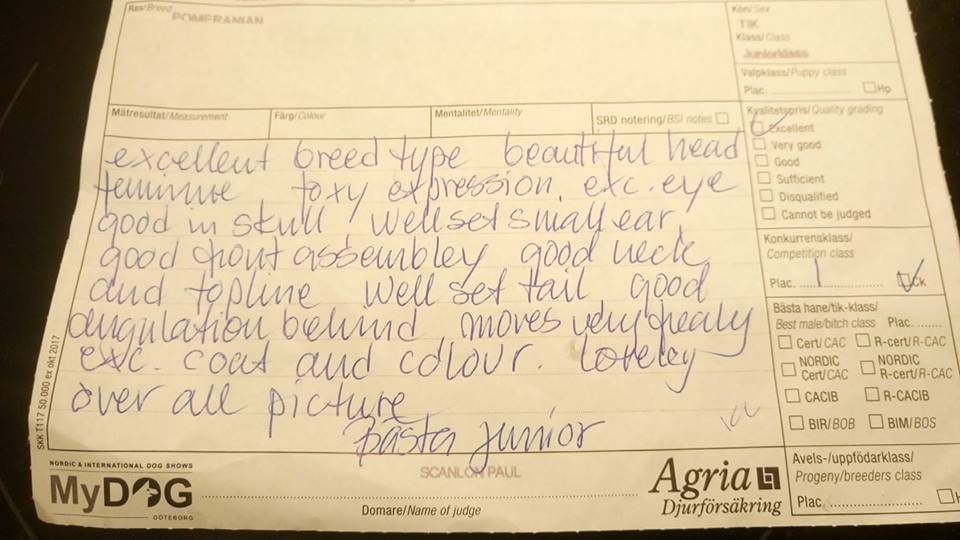 Ras/Breed
POMERANIAN
Kön/Sex
TIK
Klass/Class
Juniorklass
Valpklass/Puppy class
Plac. Hp
Mätresultat/Measurement
Färg/Colour
Mentalitet/Mentality
SRD notering/BSI notes
Kvalitetspris/Quality grading
Excellent
Very good
Good
Sufficient
Disqualified
Cannot be judged
excellent breed type beautiful head
feminine foxy expression, exc. eye
good in skull well set small ear,
good front assembley good neck
and topline well set tail good
angulation behind, moves very
exc. coat and colour. loveley
over all picture
Bästa junior
Konkurrensklass/
Competition class
Plac. 1 Ck
Bästa hane/tik-klass/
Best male/bitch class Plac.
Cert/CAC R-cert/R-CAC
NORDIC Cert/CAC NORDIC R-cert/R-CAC
CACIB R-CACIB
BIR/BOB BIM/BOS
Avels-/uppfödarklass/
Progeny/breeders class
Plac. H
SKK T117 50.000 ex okt 2017
NORDIC & INTERNATIONAL DOG SHOWS
MyDOG
GÖTEBORG
SCANLON PAUL
Domare/Name of judge
Agria
Djurförsäkring